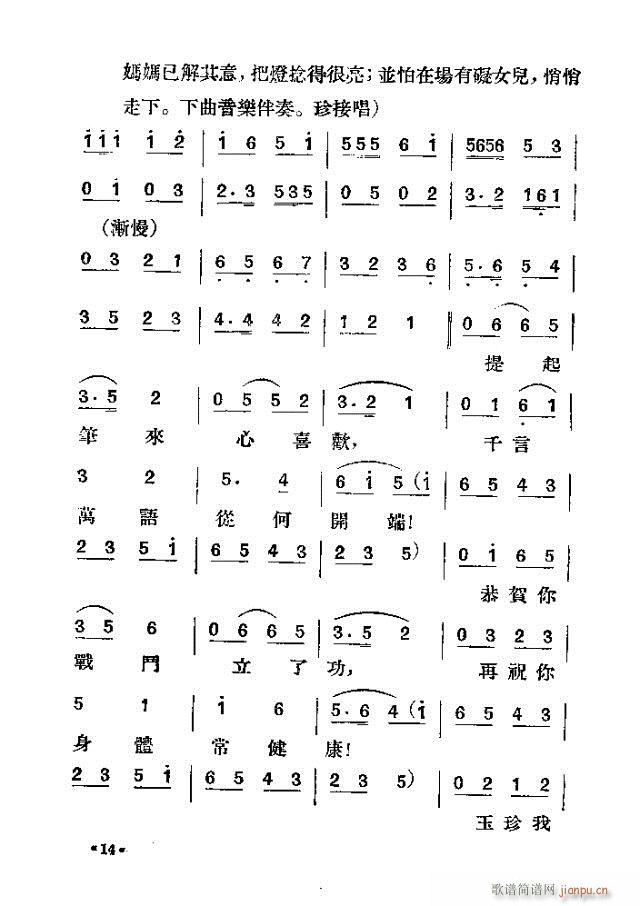 媽媽已解其意，把燈捻得很亮；並怕在場有礙女兒，悄悄
走下。下曲音樂伴奏。珍接唱）
1 1 1 1 2 | 1 6 5 1 | 5 5 5 6 1 | 5656 5 3
0 1 0 3 | 2·3 535 | 0 5 0 2 | 3·2 161
(漸慢)
0 3 2 1 | 6 5 6 7 | 3 2 3 6 | 5·6 5 4
3 5 2 3 | 4·4 4 2 | 1 2 1 ‖ 0 6 6 5
提起
3·5 2 | 0 5 5 2 | 3·2 1 | 0 1 6 1
筆來 心喜歡， 千言
3 2 | 5· 4 | 6 1 5 (1 | 6 5 4 3
萬語 從何 開端！
2 3 5 1 | 6 5 4 3 | 2 3 5) | 0 1 6 5
恭賀你
3 5 6 | 0 6 6 5 | 3·5 2 | 0 3 2 3
戰鬥 立了功， 再祝你
5 1 | 1 6 | 5·6 4 (1 | 6 5 4 3
身體 常健康！
2 3 5 1 | 6 5 4 3 | 2 3 5) | 0 2 1 2
玉珍我
·14·
歌谱简谱网
jianpu.cn